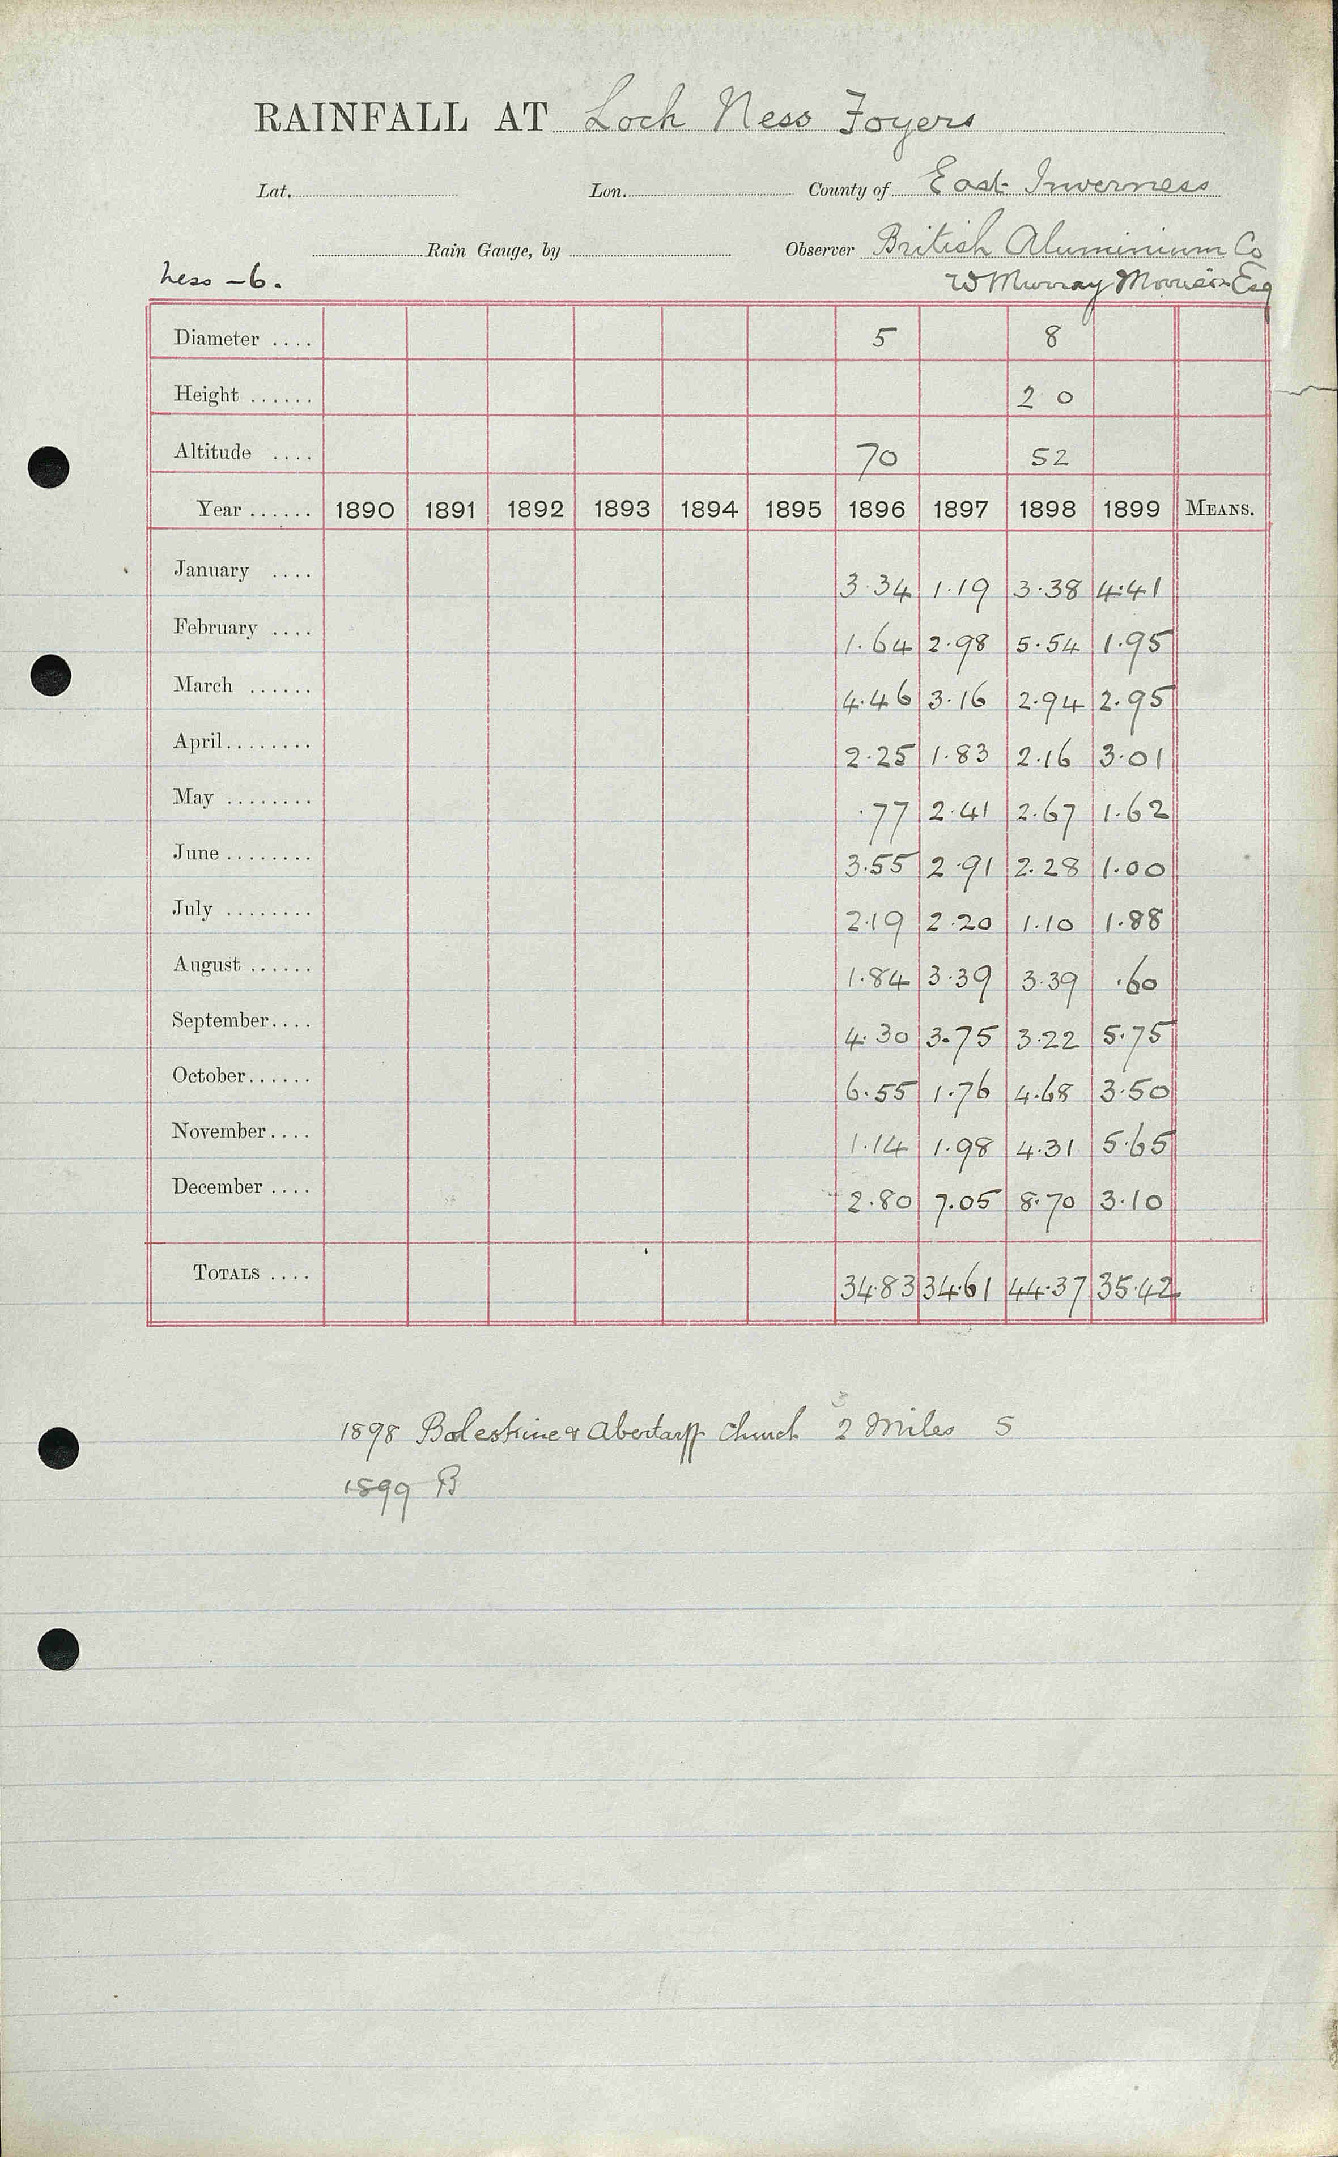 RAINFALL AT Loch Ness Foyers
Lat. Lon. County of East Inverness
Rain Gauge, by Observer British Aluminium Co
Ness - 6. W Murray Morrison Esq
Diameter .... 5 8
Height ...... 2 0
Altitude .... 70 52
Year ...... 1890 1891 1892 1893 1894 1895 1896 1897 1898 1899 MEANS.
January .... 3.34 1.19 3.38 4.41
February .... 1.64 2.98 5.54 1.95
March ...... 4.46 3.16 2.94 2.95
April........ 2.25 1.83 2.16 3.01
May ........ .77 2.41 2.67 1.62
June ........ 3.55 2.91 2.28 1.00
July ........ 2.19 2.20 1.10 1.88
August ...... 1.84 3.39 3.39 .60
September.... 4.30 3.75 3.22 5.75
October...... 6.55 1.76 4.68 3.50
November.... 1.14 1.98 4.31 5.65
December .... 2.80 7.05 8.70 3.10
TOTALS .... 34.83 34.61 44.37 35.42
3
1898 Boleskine & Abertarff Church 2 Miles S
1899 B